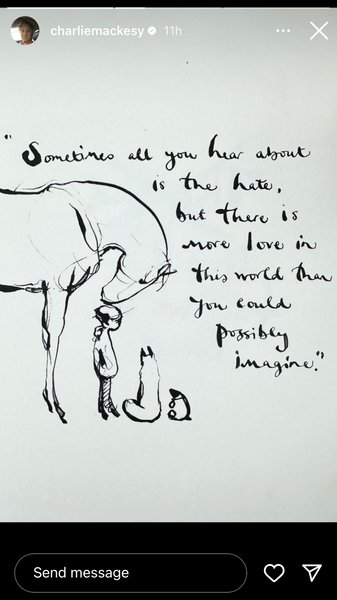 charliemackesy 11h
"Sometimes all you hear about
is the hate,
but there is
more love in
this world than
you could
possibly
imagine."
Send message